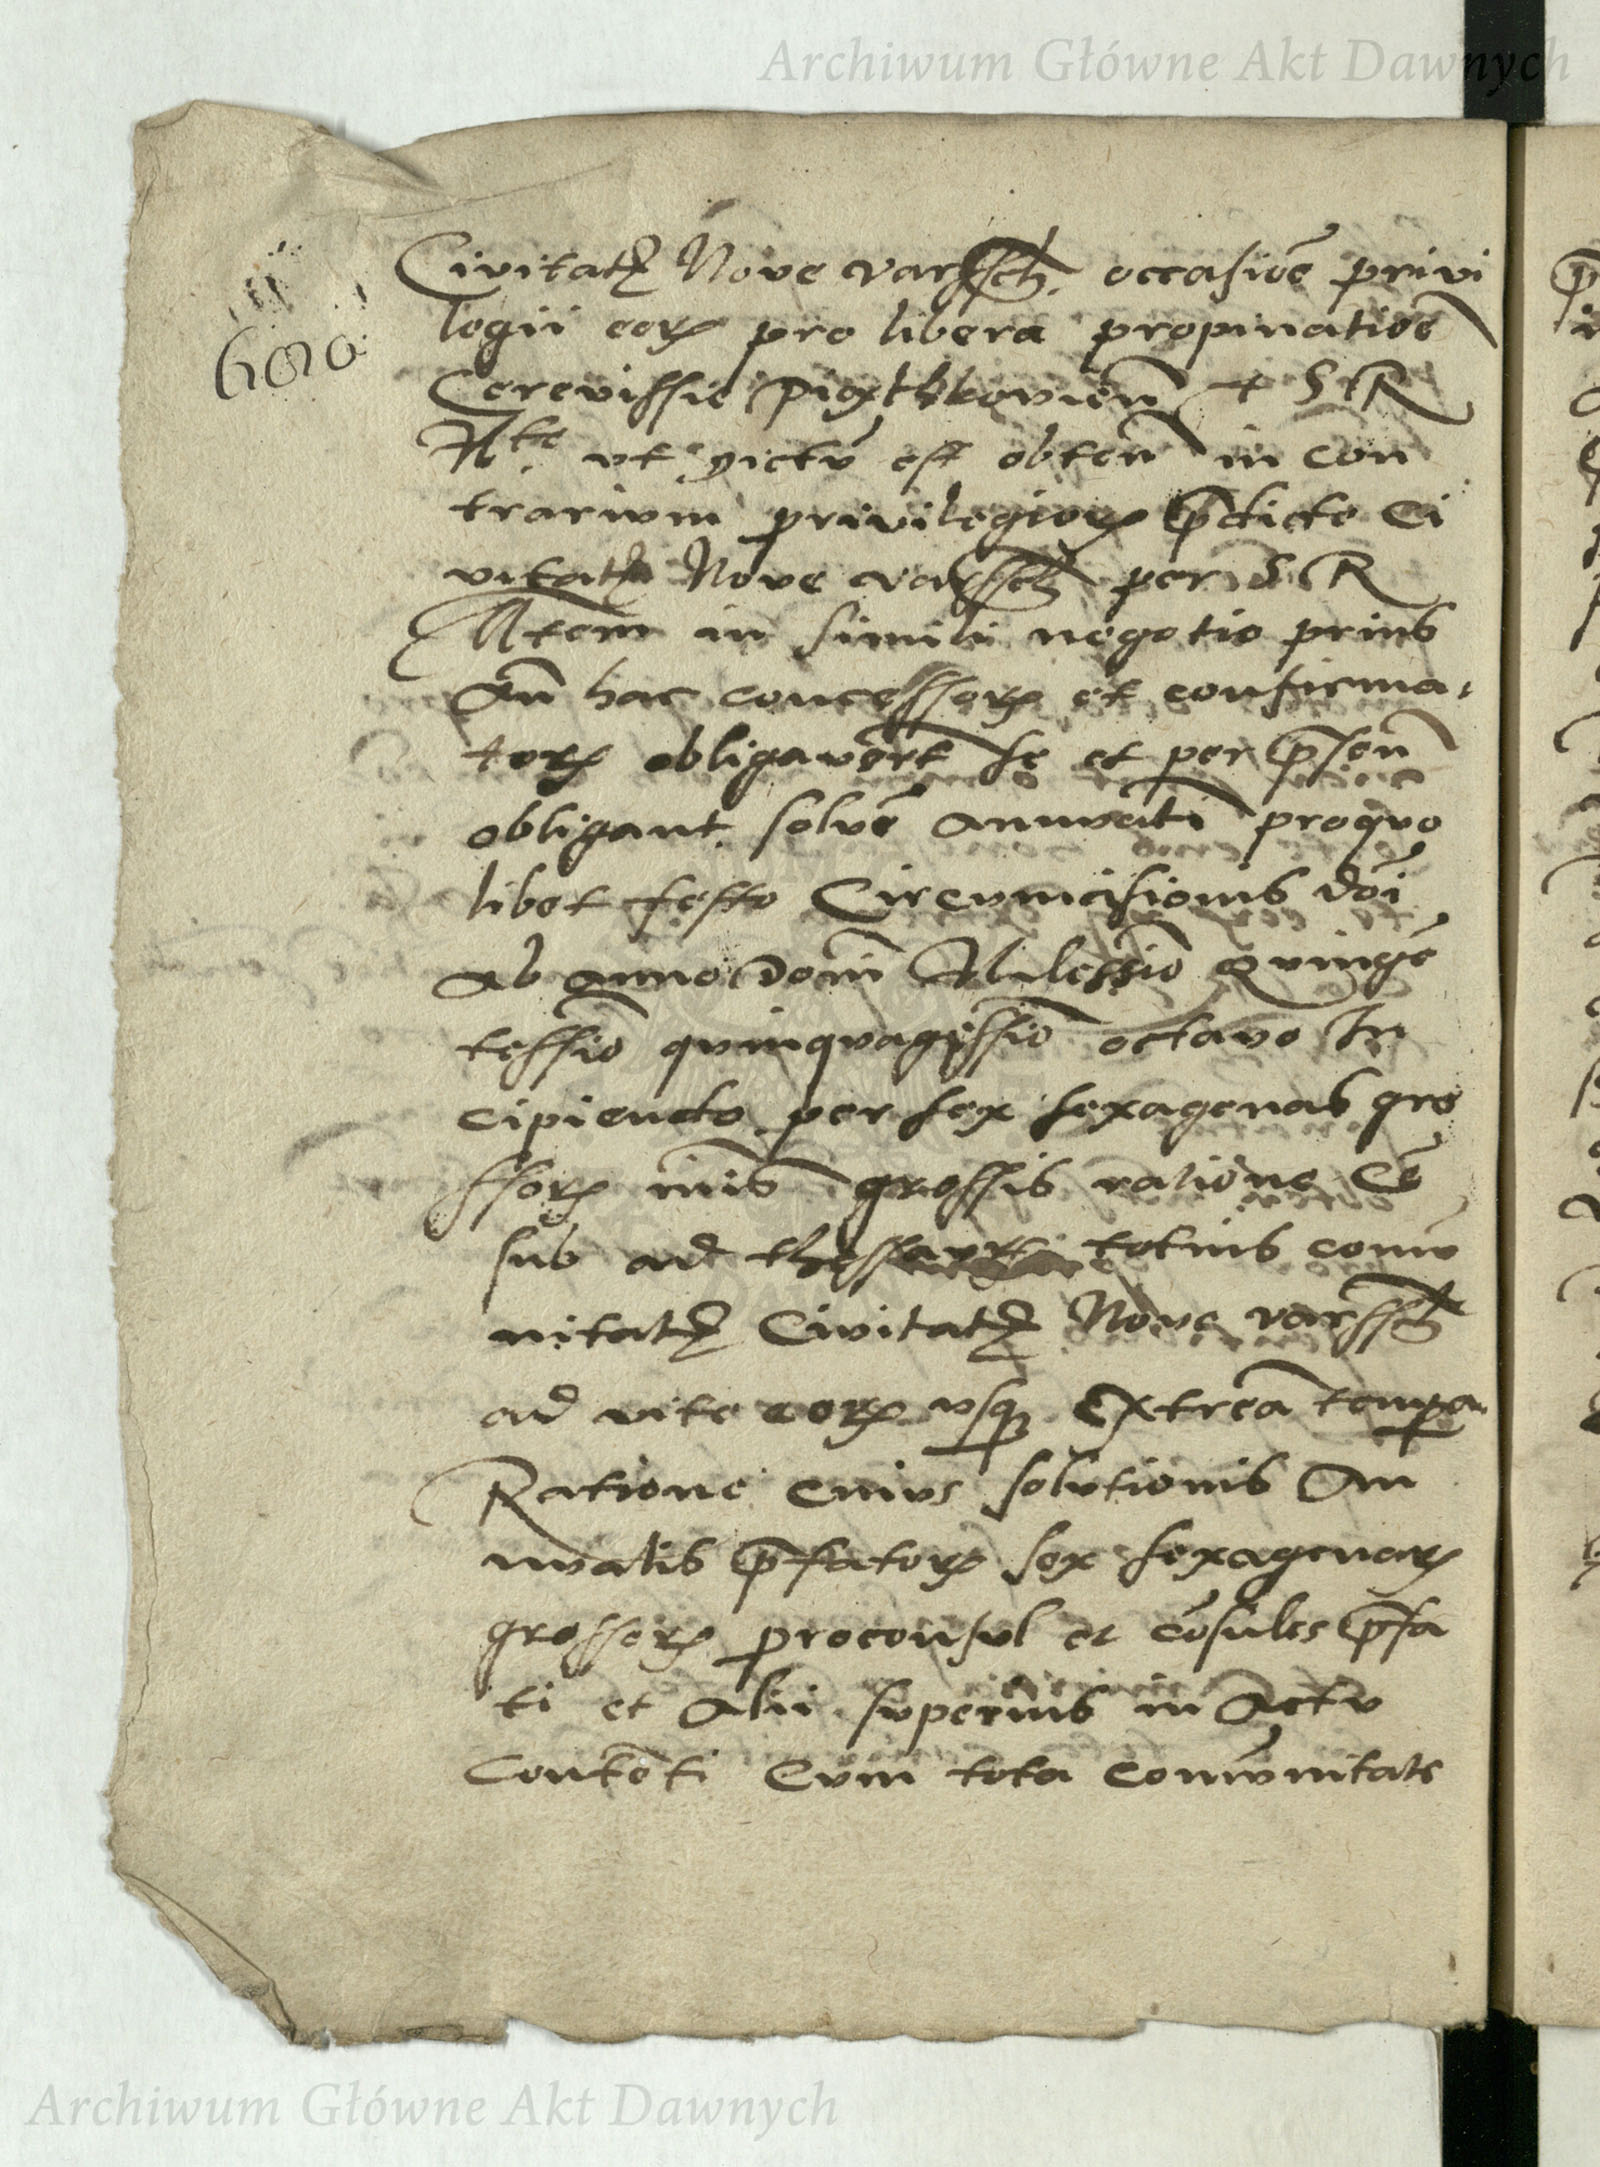 Archiwum Główne Akt Dawnych
Civitatꝭ Nove varssch. occasiōe privi
legii eoꝝ pro libera propinatiōe
Cerevissie Piothkovien̄ + S R
Mte ut dictū est obten̄ in con
trarium privilegioꝝ p̄dicte Ci
vitatꝭ Nove varssch per S R
Mtem in simili negotio prius
an̄ hac concessoꝝ et confirma-
toꝝ obligavert̄ se et per p̄sen̄
obligant solvē annuati̅ pro quo
libet festo Circumcisionis dōi
ab anno Dom̄ Milessīo Quingē
tessīo quinquagissīo octavo In
cipiendo per sex sexagenas gro
ssoꝝ grossis ratione Cē
sub ad totius comū
nitatꝭ Civitatꝭ Nove varssch
ad vite eoꝝ usqꝫ extrēa tempora
Ratione cuius solutionis An
nualis p̄fatoꝝ sex sexagenaꝝ
grossoꝝ proconsul et cōsules p̄fa
ti et Alii superius in Actu
Contēti Cum tota comūnitate
Archiwum Główne Akt Dawnych